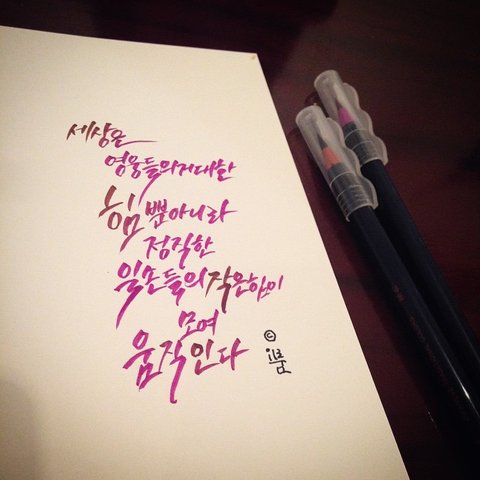 세상은
영웅들의거대한
힘뿐아니라
정직한
일꾼들의작은힘이
모여
움직인다
ⓒ